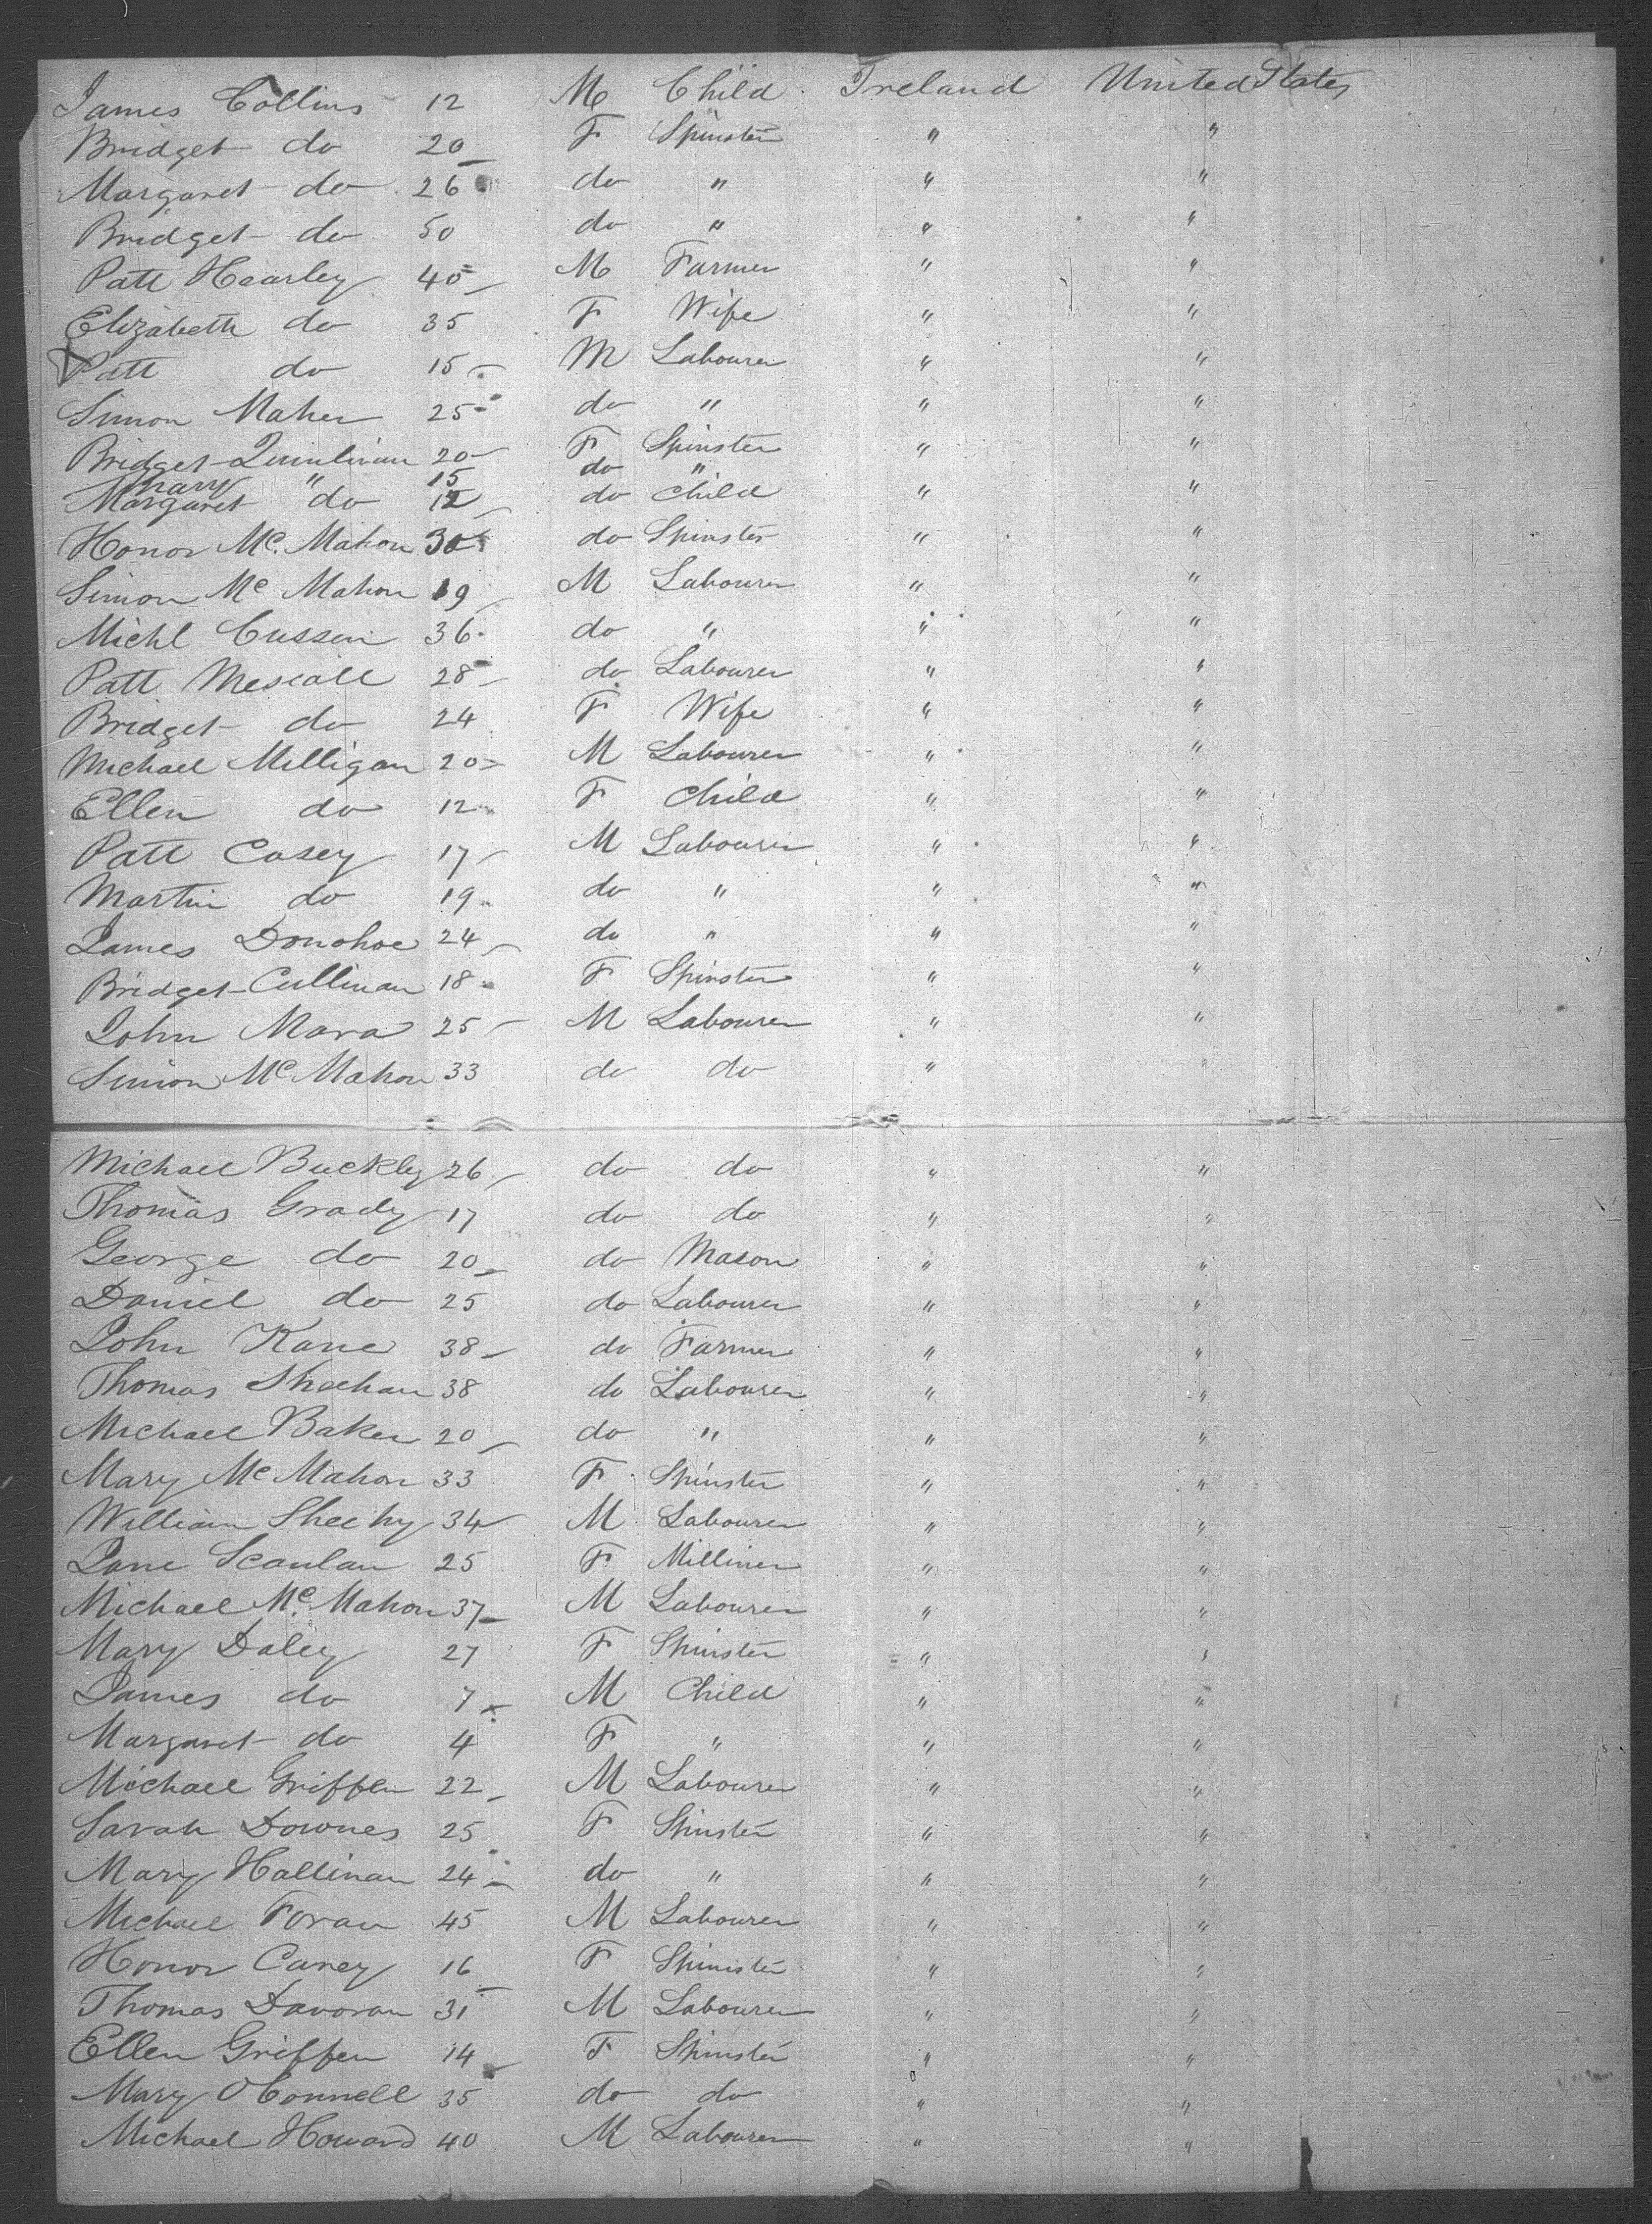 James Collins 12 M Child Ireland United States
Bridget do 20 F Spinster " "
Margaret do 26 do " " "
Bridget do 50 do " " "
Patt Hearley 40 M Farmer " "
Elizabeth do 35 F Wife " "
Patt do 15 M Labourer " "
Simon Maher 25 do " " "
Bridget Quinlivan 20 F Spinster " "
Mary " 15 do "
Margaret do 12 do Child " "
Honor Mc. Mahon 30 do Spinster " "
Simon Mc Mahon 19 M Labourer " "
Michl Cussen 36 do " " "
Patt Mescall 28 do Labourer " "
Bridget do 24 F Wife " "
Michael Milligan 20 M Labourer " "
Ellen do 12 F Child " "
Patt Casey 17 M Labourer " "
Martin do 19 do " " "
James Donohoe 24 do " " "
Bridget Cullinan 18 F Spinster " "
John Mara 25 M Labourer " "
Simon Mc Mahon 33 do do " "
Michael Buckley 26 do do " "
Thomas Grady 17 do do " "
George do 20 do Mason " "
Daniel do 25 do Labourer " "
John Kane 38 do Farmer " "
Thomas Sheehan 38 do Labourer " "
Michael Baker 20 do " " "
Mary Mc Mahon 33 F Spinster " "
William Sheehy 34 M Labourer " "
Jane Scanlan 25 F Milliner " "
Michael Mc. Mahon 37 M Labourer " "
Mary Daley 27 F Spinster " "
James do 7 M Child " "
Margaret do 4 F " " "
Michael Griffen 22 M Labourer " "
Sarah Downes 25 F Spinster " "
Mary Hallinan 24 do " " "
Michael Foran 45 M Labourer " "
Honor Carey 16 F Spinster " "
Thomas Davoran 31 M Labourer " "
Ellen Griffen 14 F Spinster " "
Mary OConnell 35 do do " "
Michael Howard 40 M Labourer " "